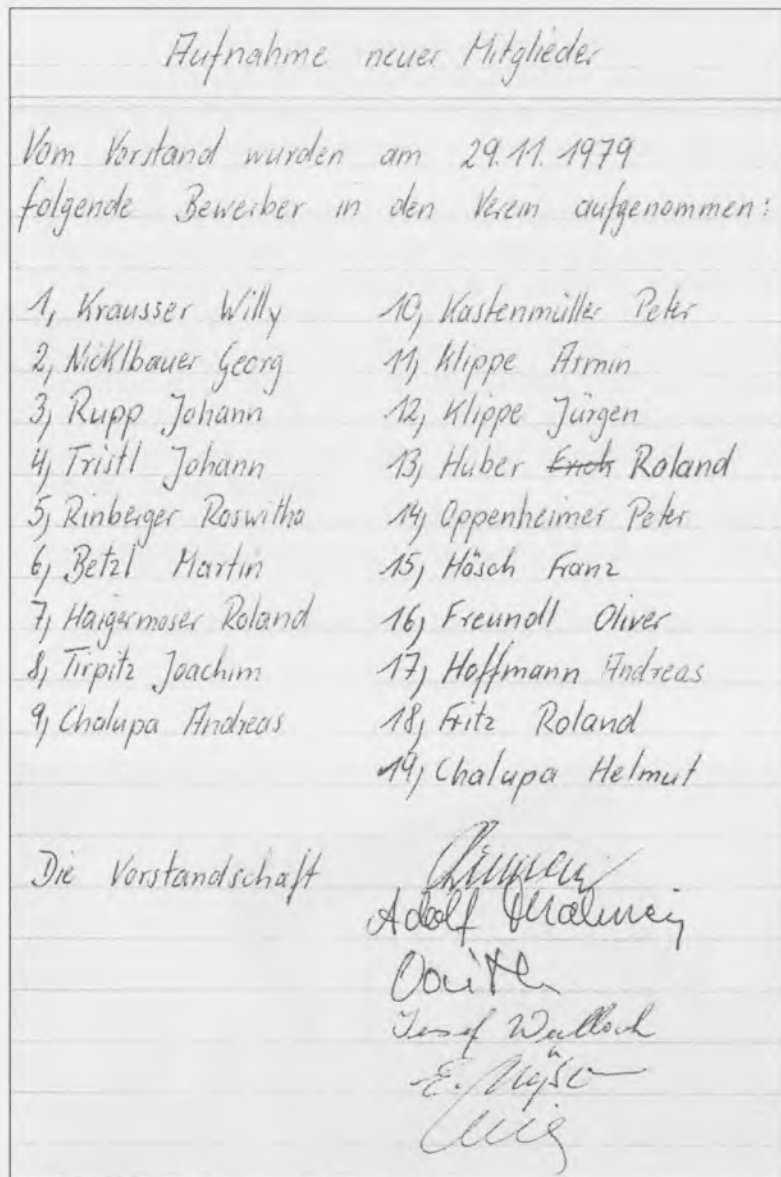 Aufnahme neuer Mitglieder
Vom Vorstand wurden am 29.11.1979
folgende Bewerber in den Verein aufgenommen:
1, Krausser Willy
2, Nicklbauer Georg
3, Rupp Johann
4, Tristl Johann
5, Rinberger Roswitha
6, Betzl Martin
7, Haigermoser Roland
8, Tirpitz Joachim
9, Chalupa Andreas
10, Kastenmüller Peter
11, Klippe Armin
12, Klippe Jürgen
13, Huber Roland
14, Oppenheimer Peter
15, Hösch Franz
16, Freundl Oliver
17, Hoffmann Andreas
18, Fritz Roland
19, Chalupa Helmut
Die Vorstandschaft
Adolf
Josef Walloch
E.